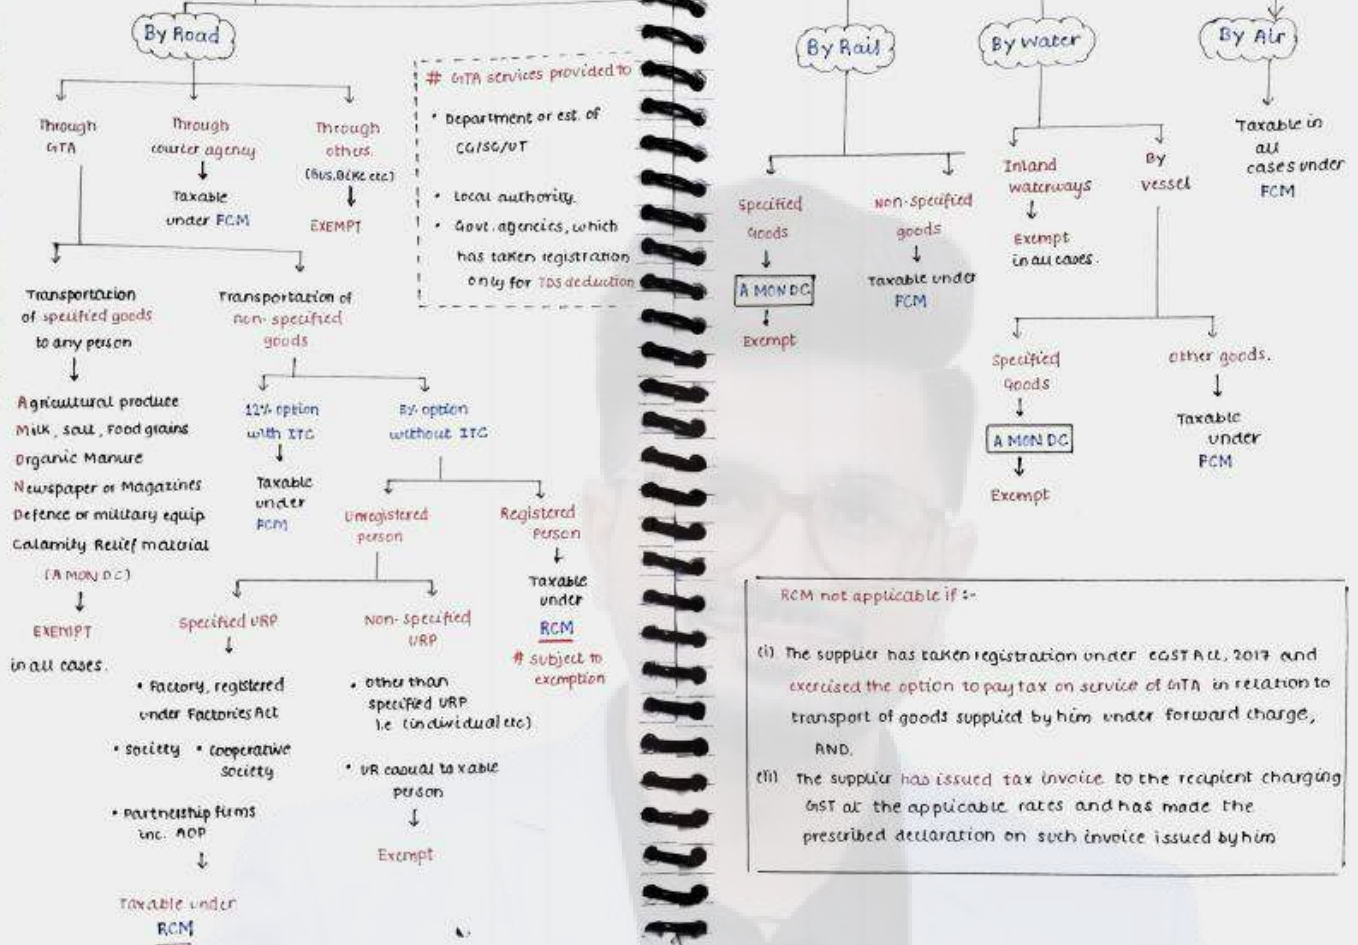 By Road
Through
GTA
Through
courier agency
Taxable
under FCM
Through
others.
(Bus, Bike etc)
EXEMPT
# GTA services provided to
• Department or est. of
CG/SG/UT
• Local authority.
• Govt. agencies, which
has taken registration
only for TDS deduction
Transportation
of specified goods
to any person
Agricultural produce
Milk, salt, Food grains
Organic Manure
Newspaper or Magazines
Defence or military equip
Calamity Relief material
(A MON DC)
EXEMPT
in all cases.
Transportation of
non-specified
goods
12% option
with ITC
Taxable
under
FCM
5% option
without ITC
Unregistered
person
Registered
Person
Taxable
under
RCM
# subject to
exemption
Specified URP
• Factory, registered
under Factories Act
• society • cooperative
society
• Partnership firms
inc. AOP
Taxable under
RCM
Non-Specified
URP
• Other than
specified URP
i.e (individual etc)
• UR casual taxable
person
Exempt
By Rail
Specified
Goods
A MON DC
Exempt
Non-specified
goods
Taxable under
FCM
By Water
Inland
waterways
Exempt
in all cases.
By
vessel
Specified
Goods
A MON DC
Exempt
Other goods.
Taxable
under
FCM
By Air
Taxable in
all
cases under
FCM
RCM not applicable if :-
(i) The supplier has taken registration under CGST Act, 2017 and
exercised the option to pay tax on service of GTA in relation to
transport of goods supplied by him under forward charge,
AND.
(ii) The supplier has issued tax invoice to the recipient charging
GST at the applicable rates and has made the
prescribed declaration on such invoice issued by him